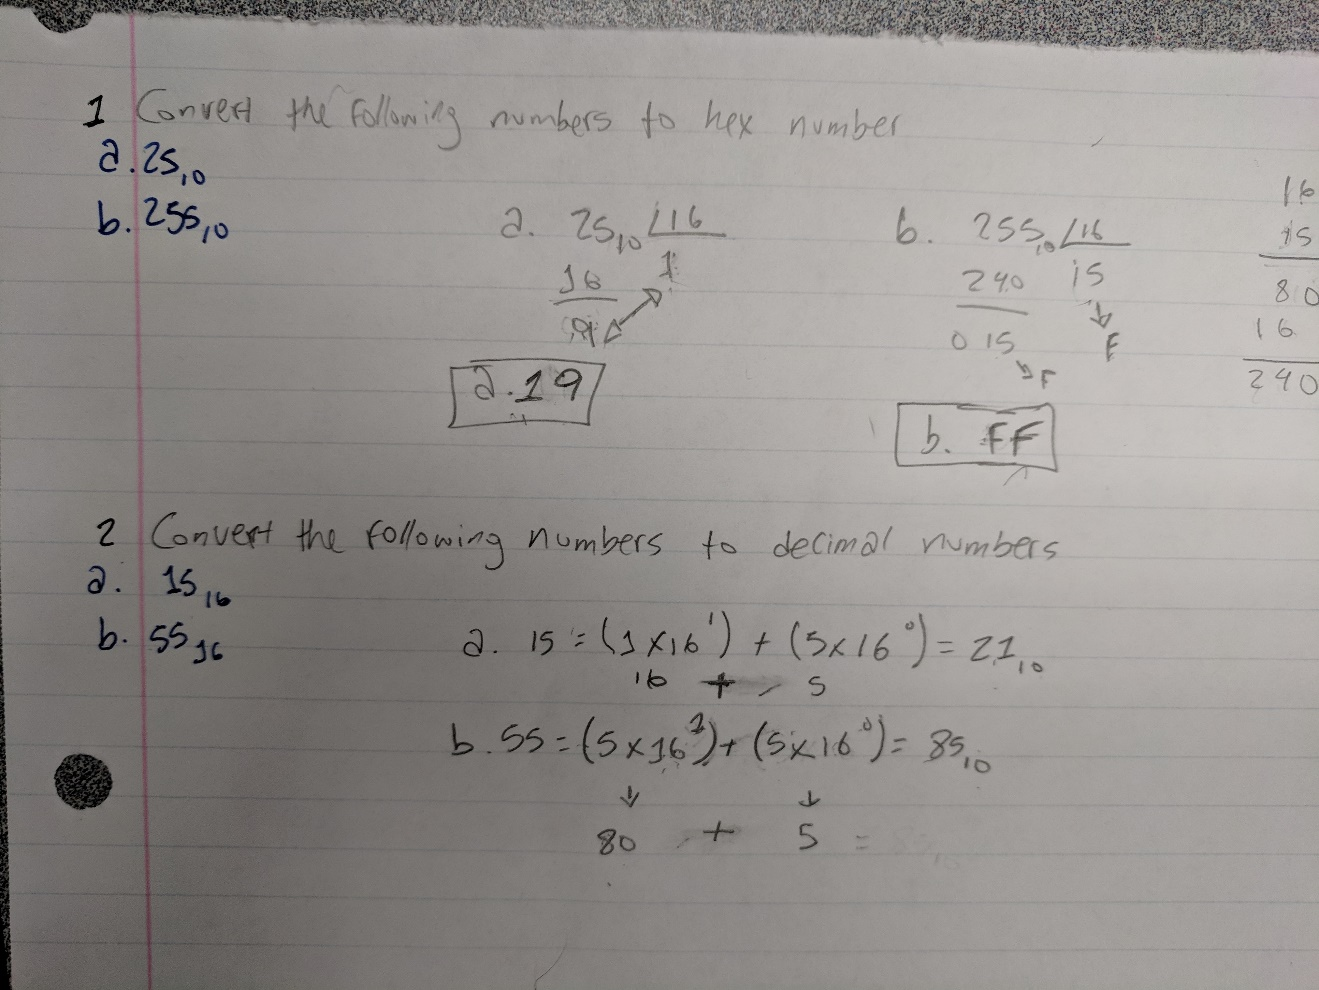 1 Convert the following numbers to hex number
a. 25₁₀
b. 255₁₀
a. 25₁₀ 16
16 1
9
a. 19
b. 255₁₀ 16
240 15
015 F
F
b. FF
16
15
80
16
240
2 Convert the following numbers to decimal numbers
a. 15₁₆
b. 55₁₆
a. 15 = (1x16¹) + (5x16⁰) = 21₁₀
16 + 5
b. 55 = (5x16¹) + (5x16⁰) = 85₁₀
↓ ↓
80 + 5 =